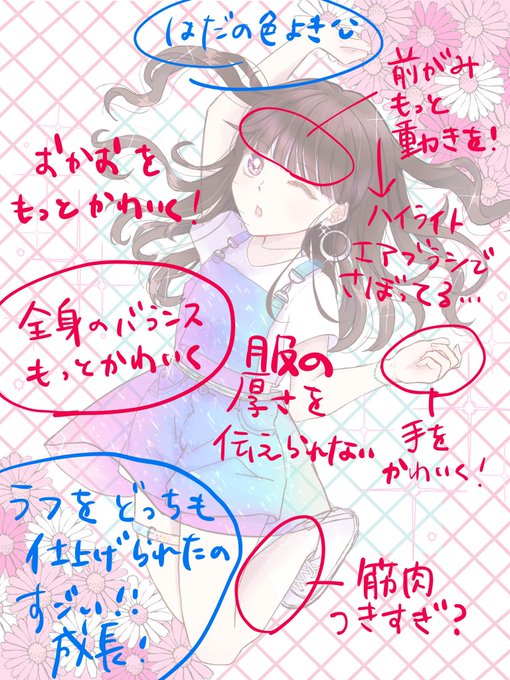 はだの色よき
前がみ
もっと
重ねきを!
おかおを
もっとかわいく!
ハイライト
エアブラシで
さぼってる…
全身のバランス
もっとかわいく
服の
厚さを
伝えられない
手を
かわいく!
ラフをどっちも
仕上げられたの
すごい!!
成長!
筋肉
つきすぎ?